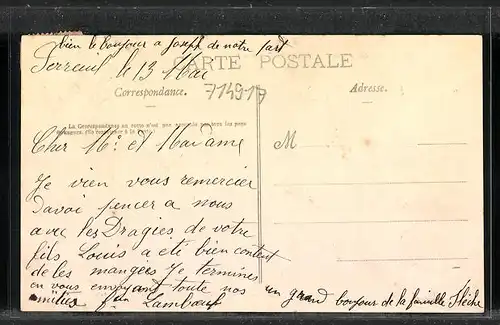 bien le bonjour a Joseph de notre part
le 13 Mai
CARTE POSTALE
Correspondance.
714917
Adresse.
La Correspondance au verso n'est pas
M
Cher Mr et Madame
Je vien vous remercier
Davoi pencer a nous
avec les Dragies de votre
fils Louis a eté bien content
de les manger Je termines
en vous envoyant toute nos
amitiés fm Lambœuf
un grand bonjour de la famille Flèche